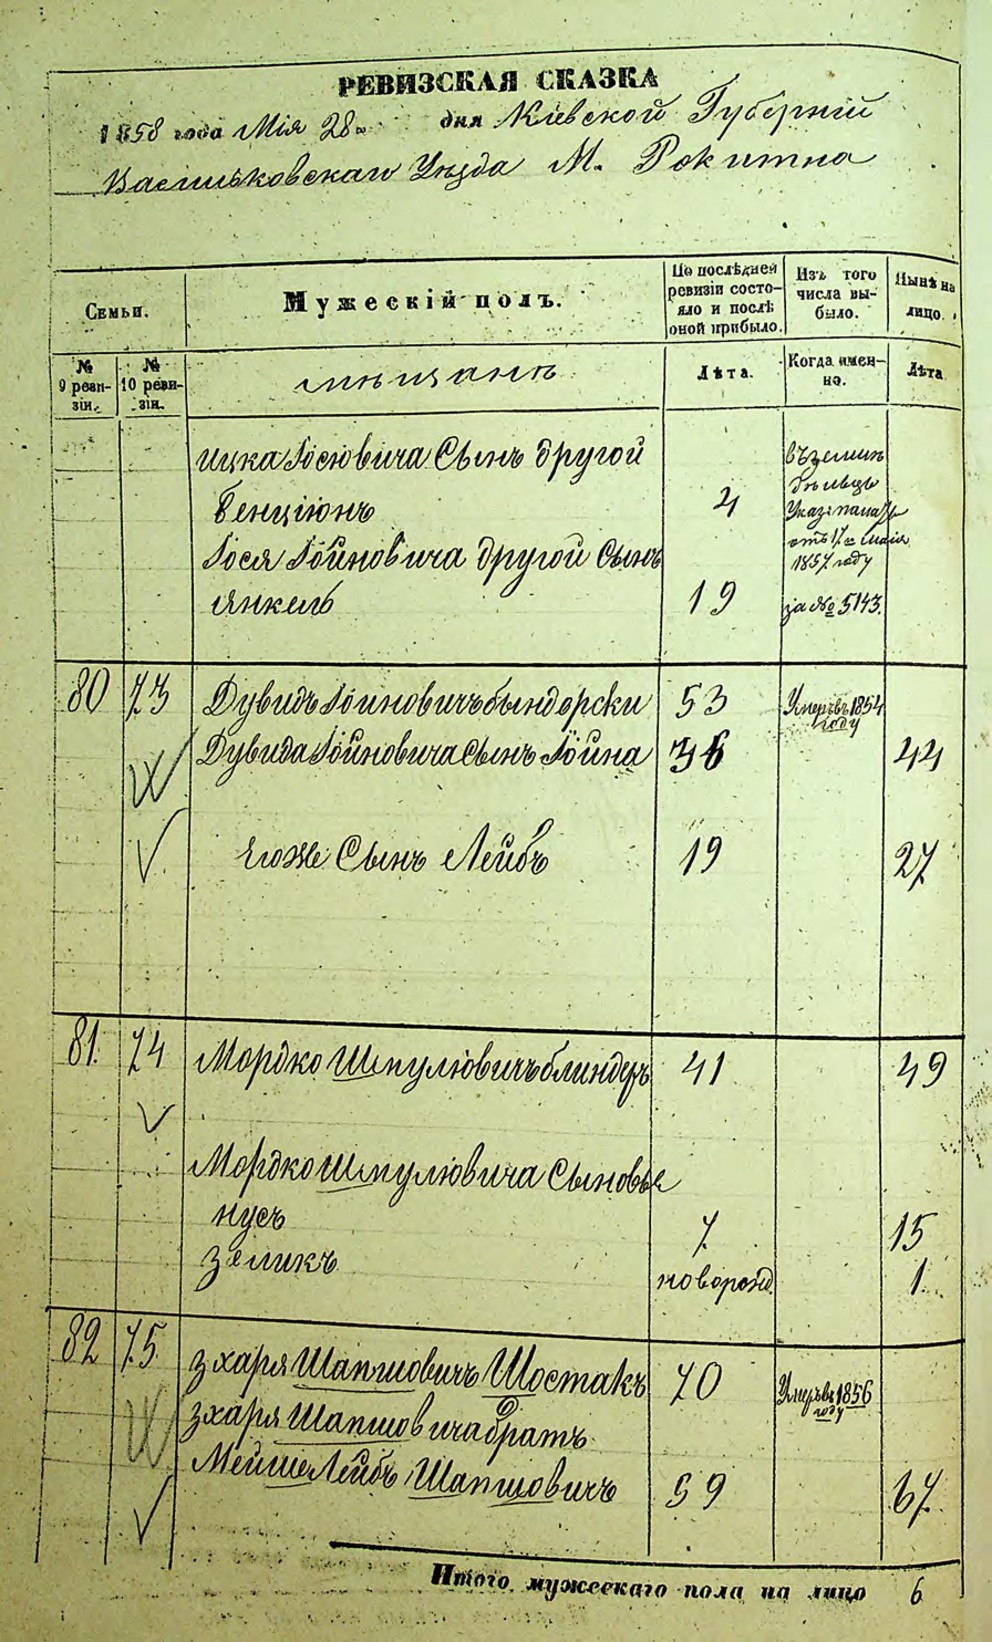 РЕВИЗСКАЯ СКАЗКА
1858 года Мія 28го дня Кіевской Губерніи
Васильковскаго Уѣзда М. Рокитна
Семьи.
Мужескій полъ.
По послѣдней ревизіи состояло и послѣ оной прибыло.
Изъ того числа выбыло.
Нынѣ на лицо.
№ 9 ревизіи.
№ 10 ревизіи.
мѣщанѣ
Лѣта.
Когда именно.
Лѣта
ицка Іосіовича Сынъ другой
въземли
Бенціонъ 4
Указ
Іося Іойновича другой Сынъ
отъ 17го маія
1857 году
Янкель 19 за № 5143.
80 73 Дувидъ Іоиновичъ бындорски 53 Умеръ въ 1854 году
Дувида Іойновича Сынъ Іойна 36 44
Ягоже Сынъ Лейбъ 19 27
81. 74 Мордко Шмулювичъ блиндеръ 41 49
Мордко Шмулювича Сыновья
нусъ 7. 15
Зеликъ новорожд. 1.
82 75 Зхаря Шапшовичъ Шостакъ 70 Умеръ въ 1856 году
Зхаря Шапшовича братъ
Мейше Лейбъ Шапшовичъ 59 67.
Итого мужескаго пола на лицо 6